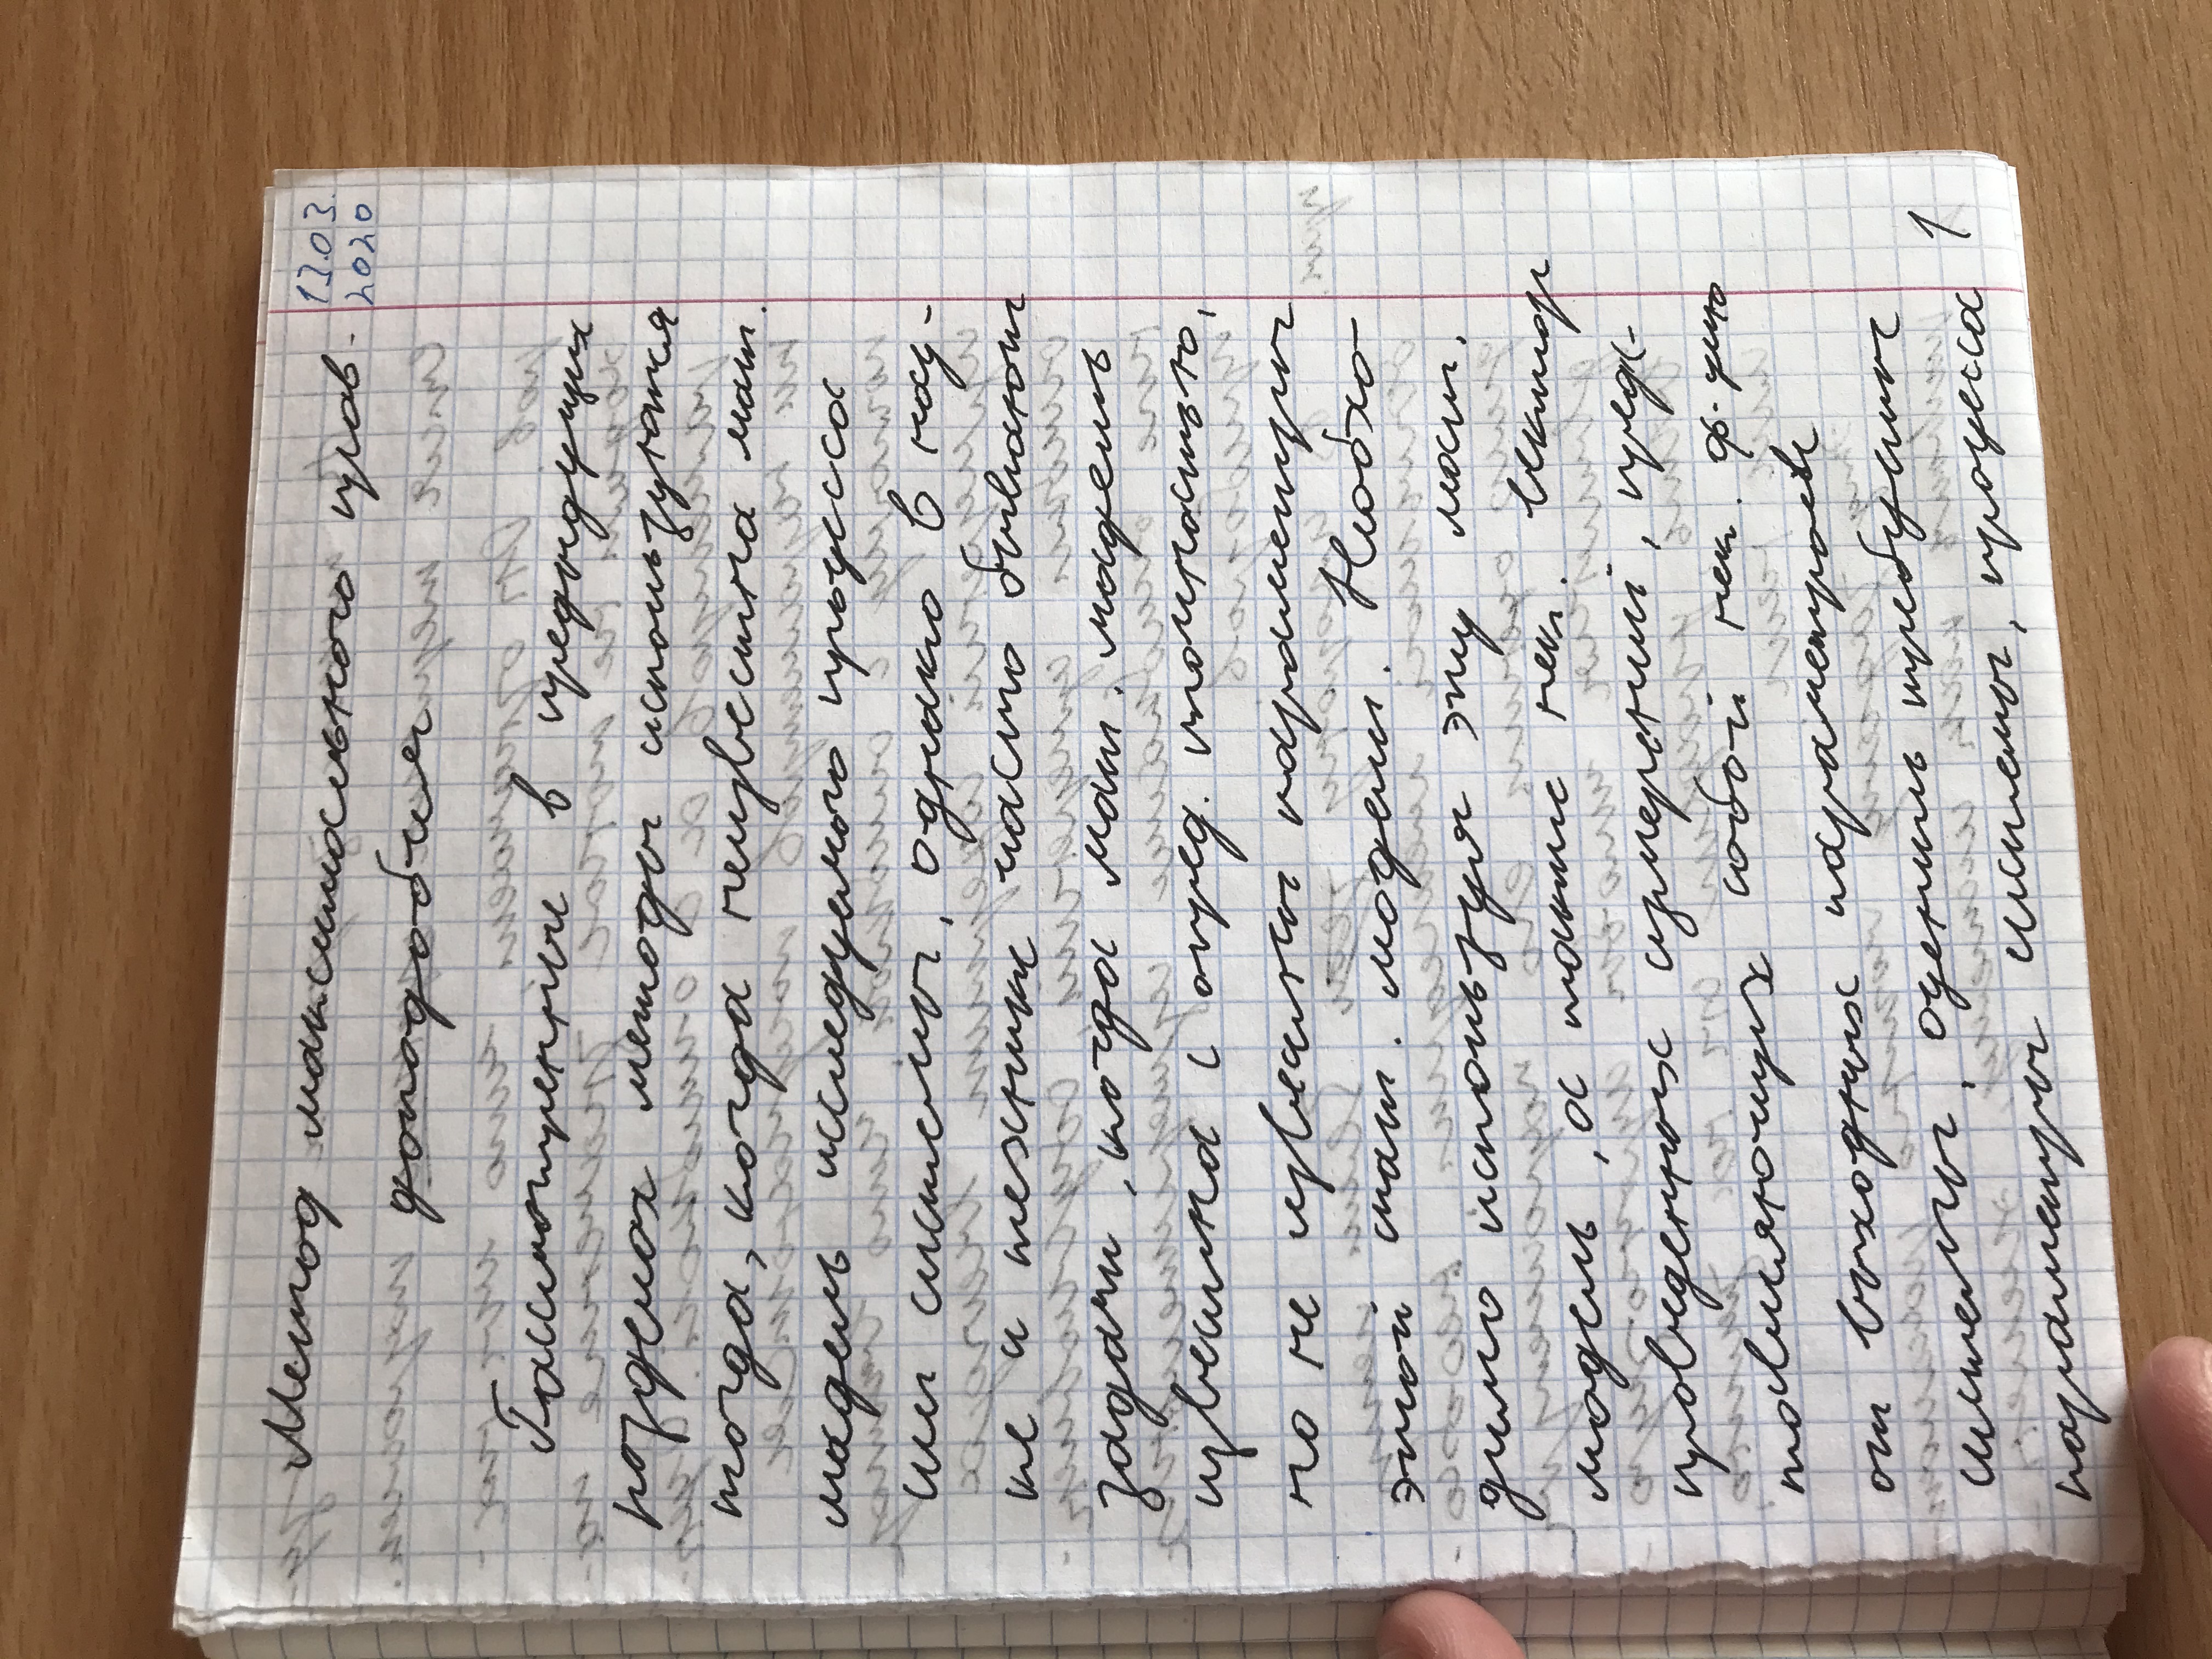 Метод максимального прав-
13.03.
2020
доподобия
Рассмотренные в предыдущих
разделах методы используются
тогда, когда неизвестна мат.
модель исследуемого процесса
или системы, однако в нау-
ке и технике часто бывают
задачи, когда мат. модель
известна с опред. точностью,
но не известны параметры
этой мат. модели. Необхо
димо используя эту мат.
модель, а также нек. вектор
проведенных измерений, предс-
тавляющих собой нек. ф-цию
от выходных параметров
системы, оценить требуемые
параметры системы, процесса
1